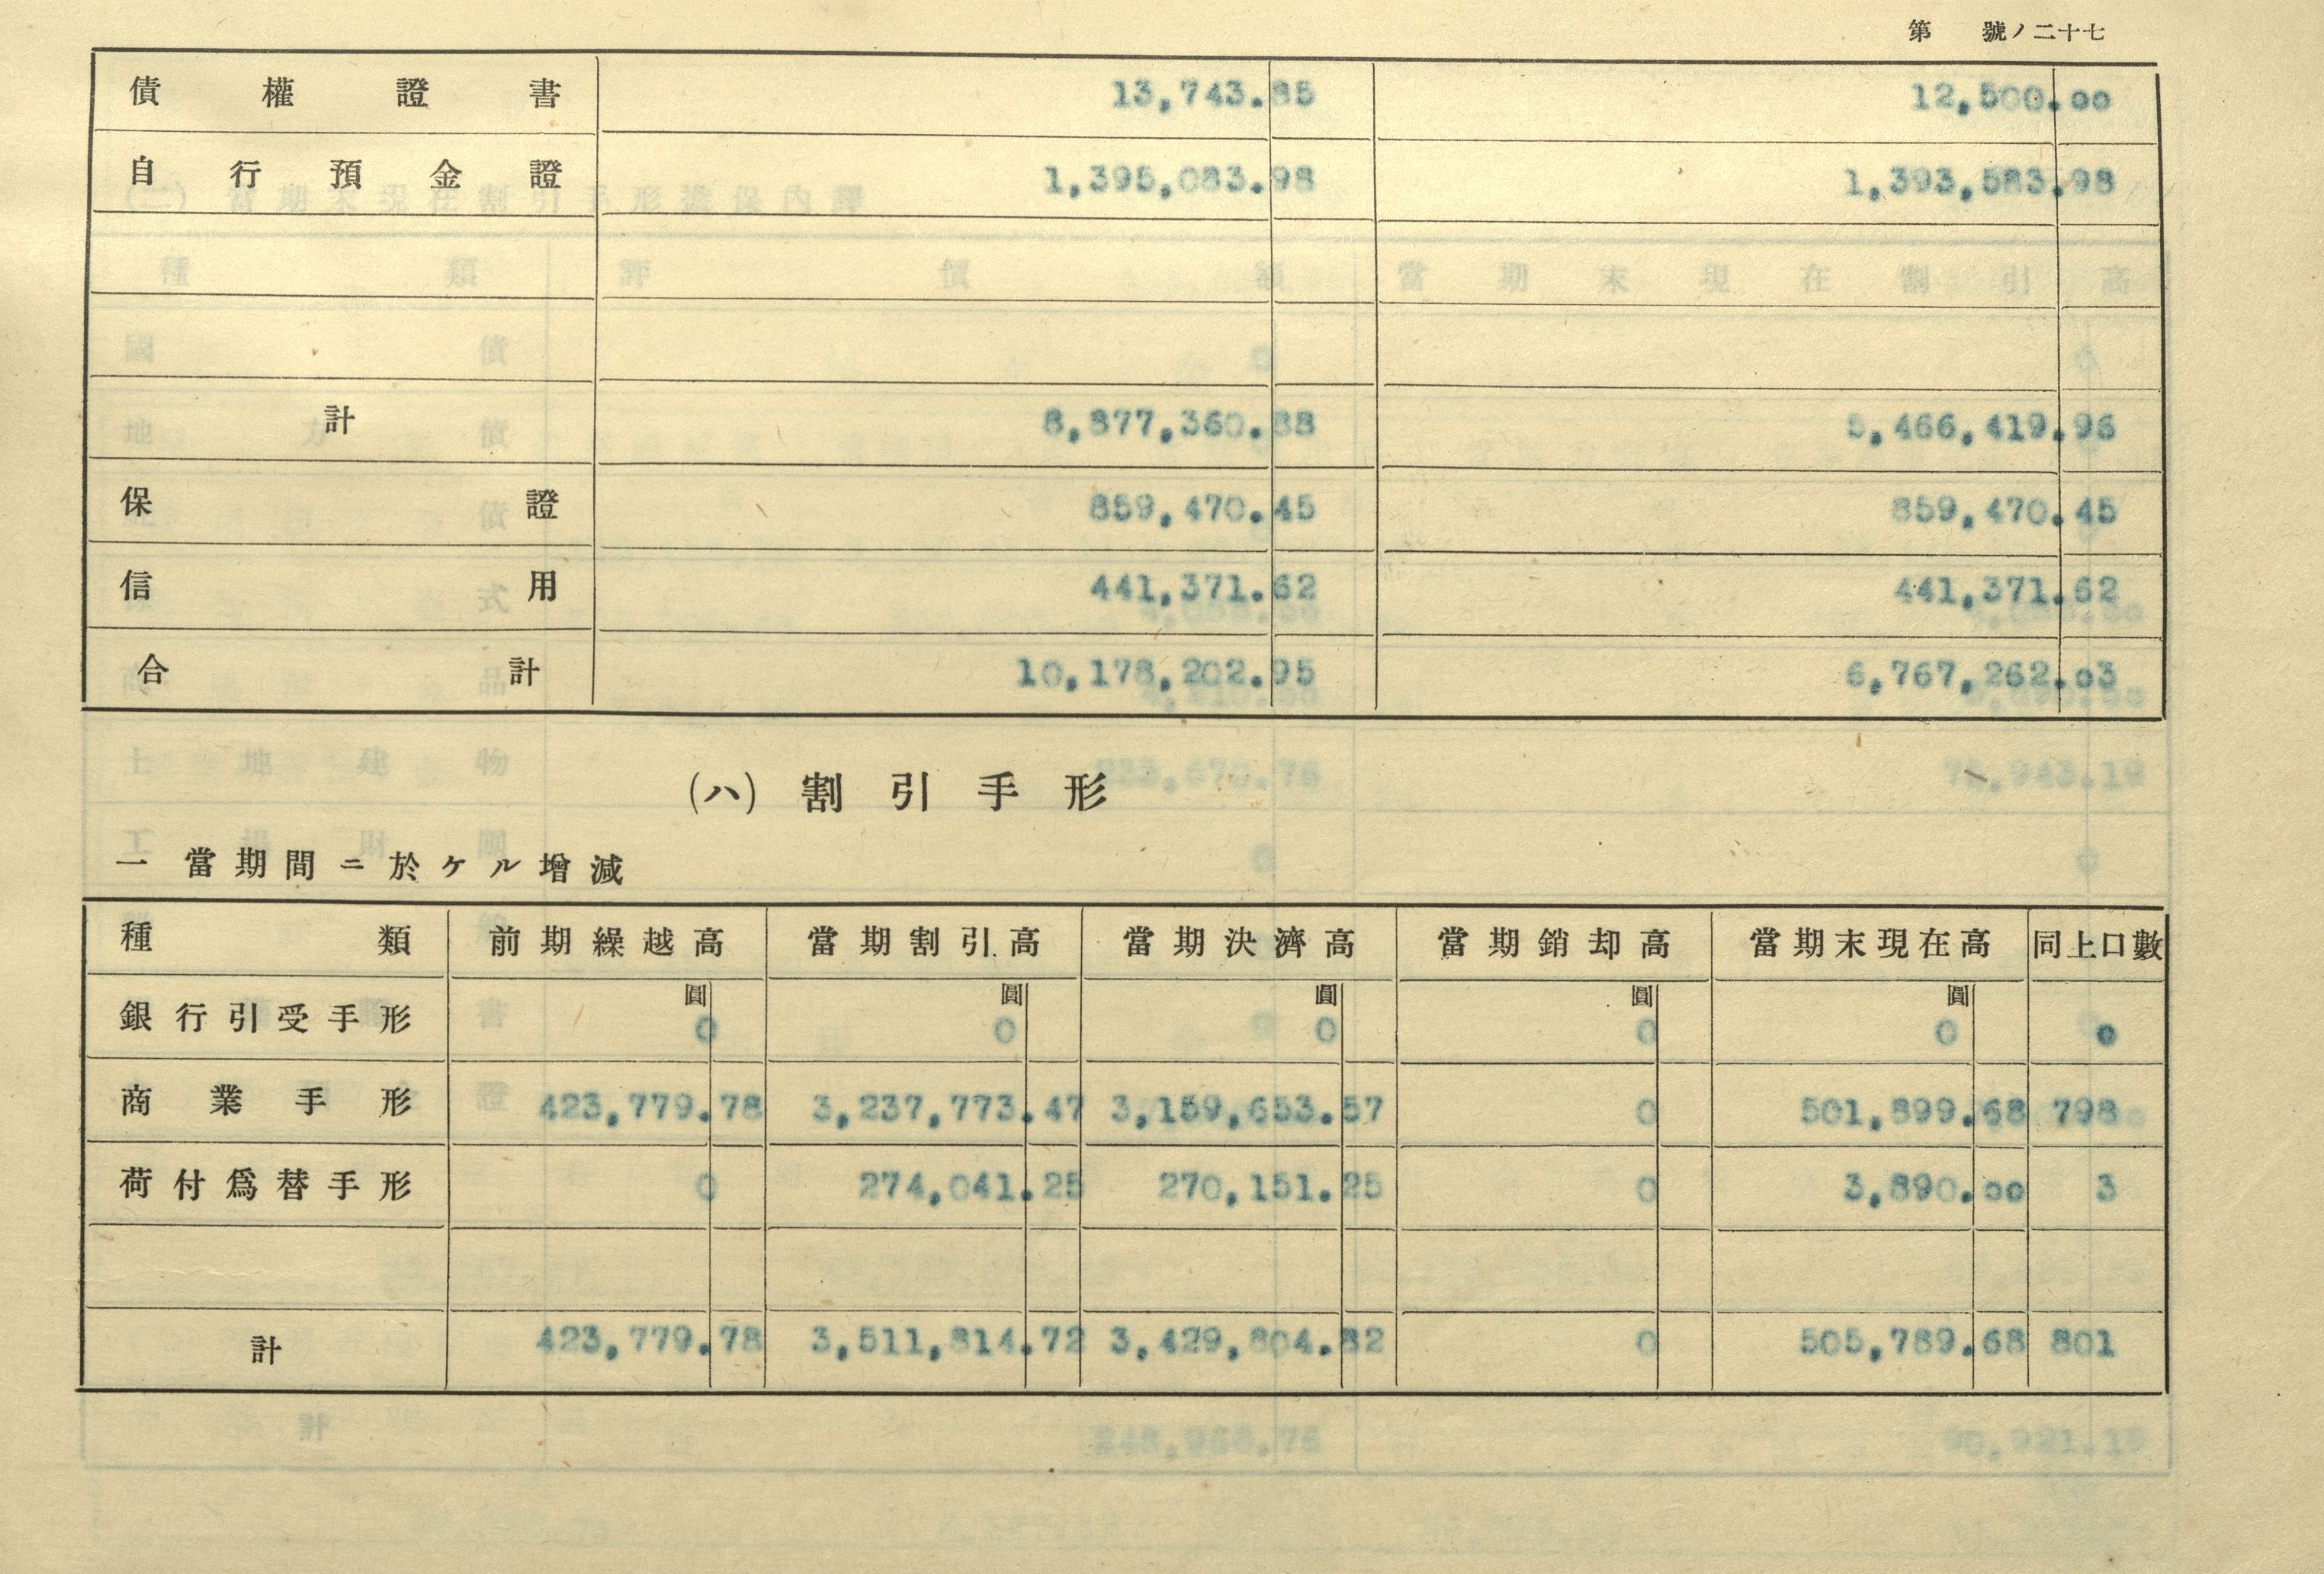 第 號ノ二十七
債權證書 13,743.85 12,500.00
自行預金證 1,395,083.98 1,393,583.98
計 8,877,360.88 5,466,419.96
保證 859,470.45 859,470.45
信用 441,371.62 441,371.62
合計 10,178,202.95 6,767,262.03
(ハ) 割引手形
一 當期間ニ於ケル增減
種類 前期繰越高 當期割引高 當期決濟高 當期銷却高 當期末現在高 同上口數
圓 圓 圓 圓 圓
銀行引受手形 0 0 0 0 0 0
商業手形 423,779.78 3,237,773.47 3,159,653.57 0 501,899.68 798
荷付爲替手形 0 274,041.25 270,151.25 0 3,890.00 3
計 423,779.78 3,511,814.72 3,429,804.82 0 505,789.68 801